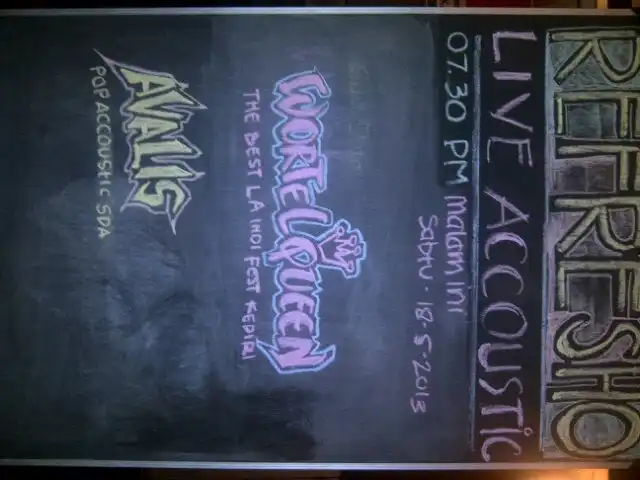 REFRESHO
LIVE ACCOUSTIC
07.30 PM malam ini
Sabtu . 18-5-2013
WORTELQUEEN
THE BEST LA INDI FEST KEDIRI
AVALIS
POP ACCOUSTIC SDA